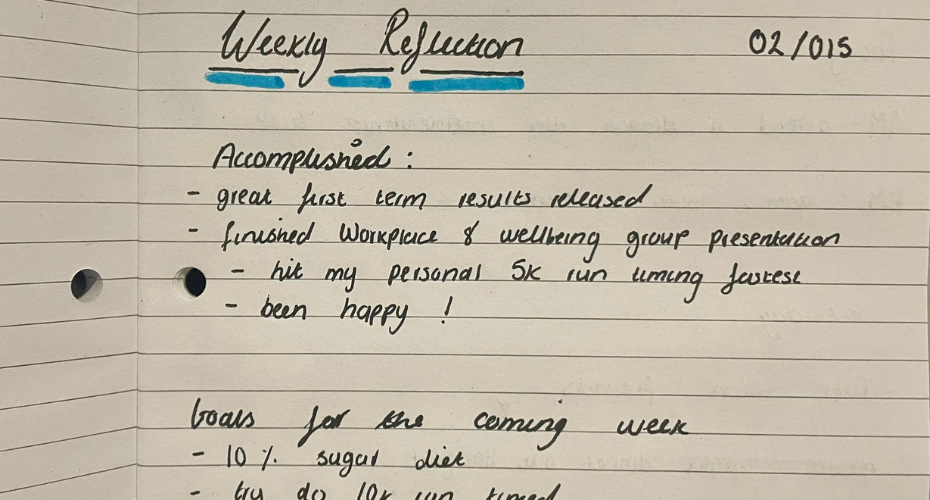 Weekly Reflection 02/015
Accomplished :
- great first term results released
- finished Workplace & wellbeing group presentation
- hit my personal 5k run timing fastest
- been happy !
Goals for the coming week
- 10 % sugar diet
- try do 10k run timed